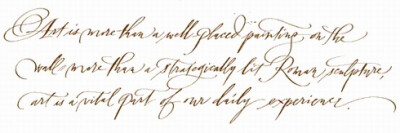 Art is more than a well placed painting on the
wall more than a strategically lit Roman sculpture,
art is a vital part of our daily experience.